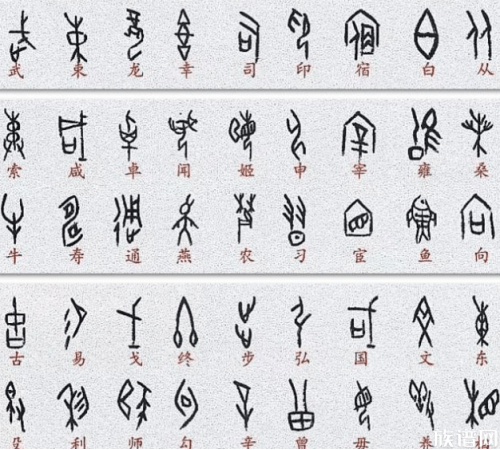 武 束 龙 幸 司 印 宿 白 从
索 咸 卓 闻 姬 申 宰 雍 桑
牛 寿 通 燕 农 习 宦 鱼 向
古 易 戈 终 步 弘 国 文 东
利 师 勾 辛 曾 毋 养
族谱网